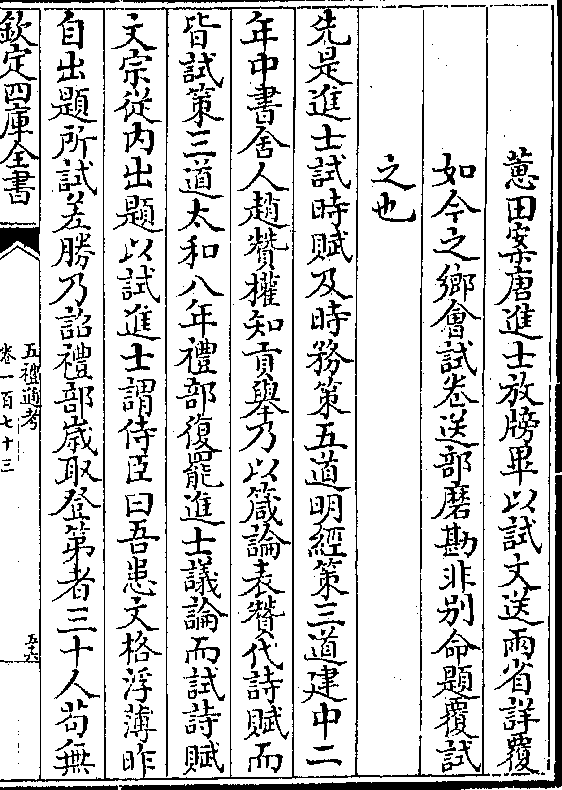 蕙田案唐進士放牓畢以試文送兩省詳覆
如今之鄉會試卷送部磨勘非别命題覆試
之也
先是進士試時賦及時務策五道明經策三道建中二
年中書舍人趙贊權知貢舉乃以箴論表贊代詩賦而
皆試策三道太和八年禮部復罷進士議論而試詩賦
文宗從内出題以試進士謂侍臣曰吾患文格浮薄昨
自出題所試差勝乃詔禮部歲取登第者三十人苟無
欽定四庫全書
五禮通考
卷一百七十三
五六